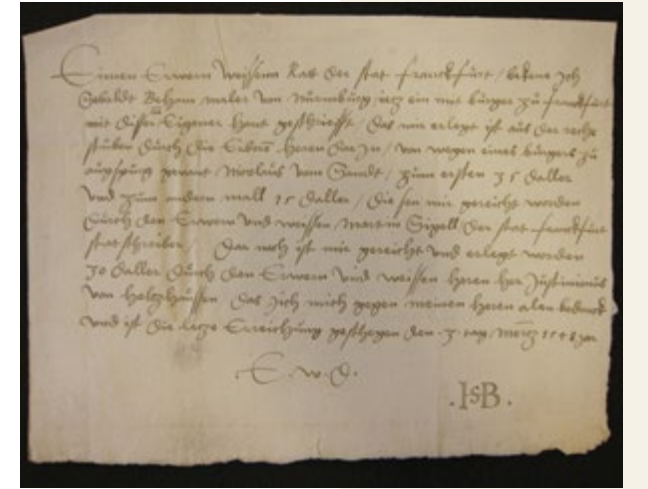 Einen Erwern Weissenn Ratt der stat franckfurt / bekene Ich
Sebaldt Beham maler von Nurmburg ietz ein mit burger zu franckfurt
mit diser Eigener hant geschriefft / das mir erlegt ist aus der reche
stuben durch die Erbern heren dar In / von wegen eines burgers zu
augspurg genant Nicolaus vom Sandt / zum ersten 35 daller
und zum andern mall 15 daller / die sen mir gereicht worden
durch den Erwern und weissen / Martin Sigell der stat franckfurt
statschreiber / Dar noch ist mir gereicht und erlegt worden
30 daller durch den Erwern und weissen heren her Justinianus
von holtzhaussen das Ich mich gegen meinen heren alen bedanck
und ist die letze Erreichung geschegen den 3 tag Mertz 1548 Jar
E . w . D .
. IsB .